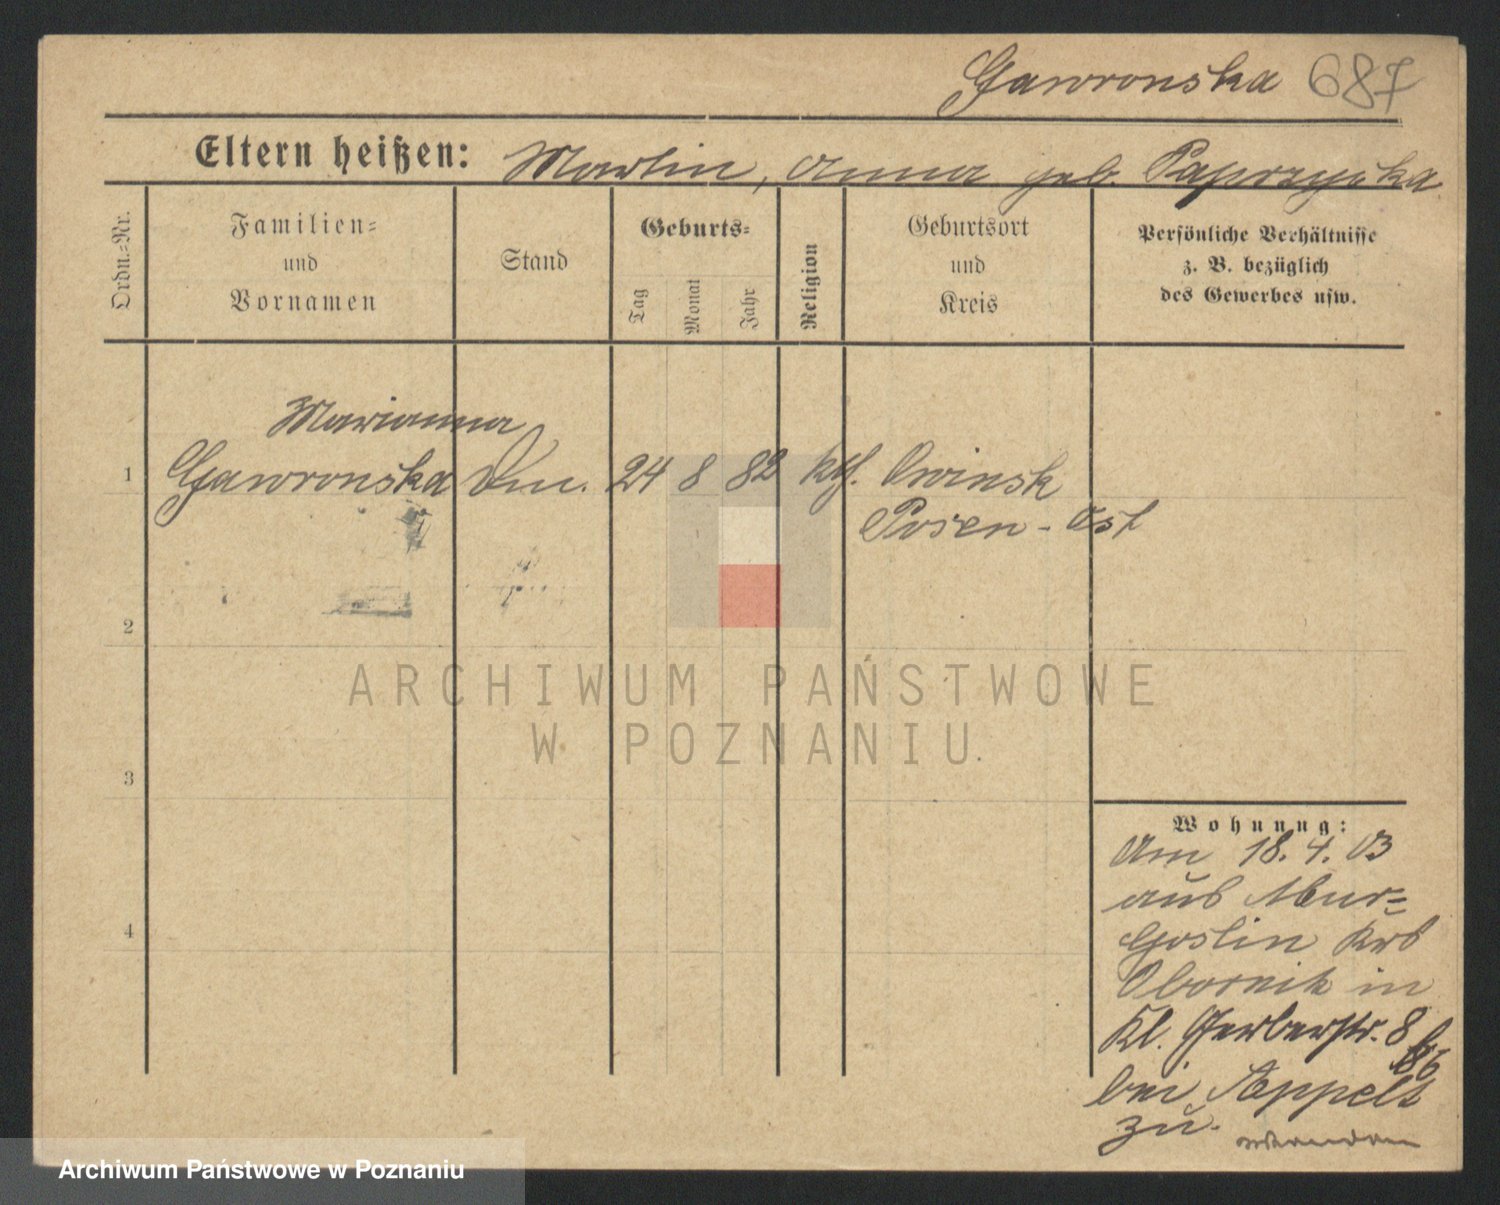 Gawronska 687
Eltern heißen: Martin, Anna geb. Paprzycka
Ordn.-Nr.
Familien-
und
Vornamen
Stand
Geburts-
Tag
Monat
Jahr
Religion
Geburtsort
und
Kreis
Persönliche Verhältnisse
z. B. bezüglich
des Gewerbes usw.
Marianna
1 Gawronska 24 8 82 kth. Owinsk
Posen - Ost
2
3
4
Wohnung:
Am 18. 4. 03
aus Mur-
Goslin Krs
Obornik in
Kl. Gerberstr. 8
bei Appelt
zu.
ARCHIWUM PAŃSTWOWE
W POZNANIU
Archiwum Państwowe w Poznaniu